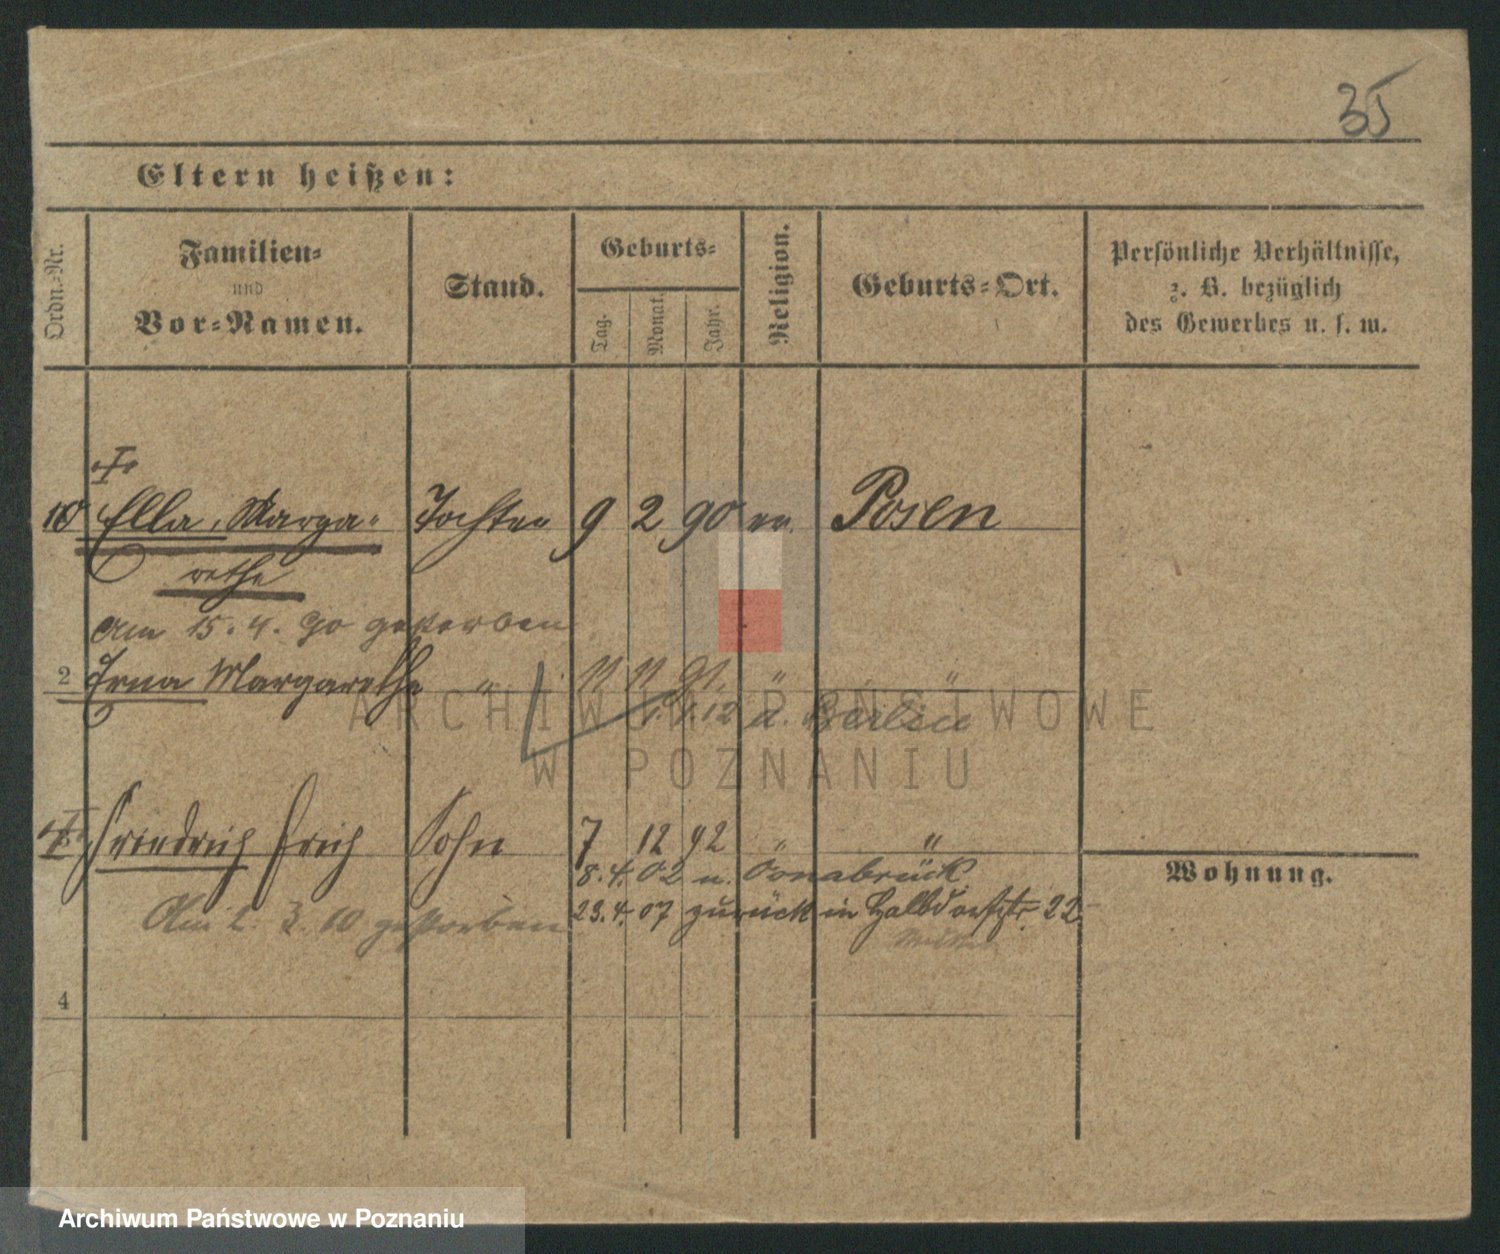 35
Eltern heißen:
Ordn.-Nr.
Familien-
und
Vor-Namen.
Stand.
Geburts-
Tag.
Monat.
Jahr.
Religion.
Geburts-Ort.
Persönliche Verhältnisse,
z. B. bezüglich
des Gewerbes u. s. w.
10 Ella, Marga- Tochter 9 2 90 ev. Posen
rethe
Am 15. 4. 90 gestorben
2 Erna Margarethe " 11 11 91. " "
1. 12 n. Berlin
Friedrich Erich Sohn 7 12 92 " "
8. 4. 02 n. Osnabrück
Am 2. 3. 10 gestorben 23. 4. 07 zurück in Halbdorfstr. 22
Wohnung.
4
ARCHIWUM PAŃSTWOWE
W POZNANIU
Archiwum Państwowe w Poznaniu